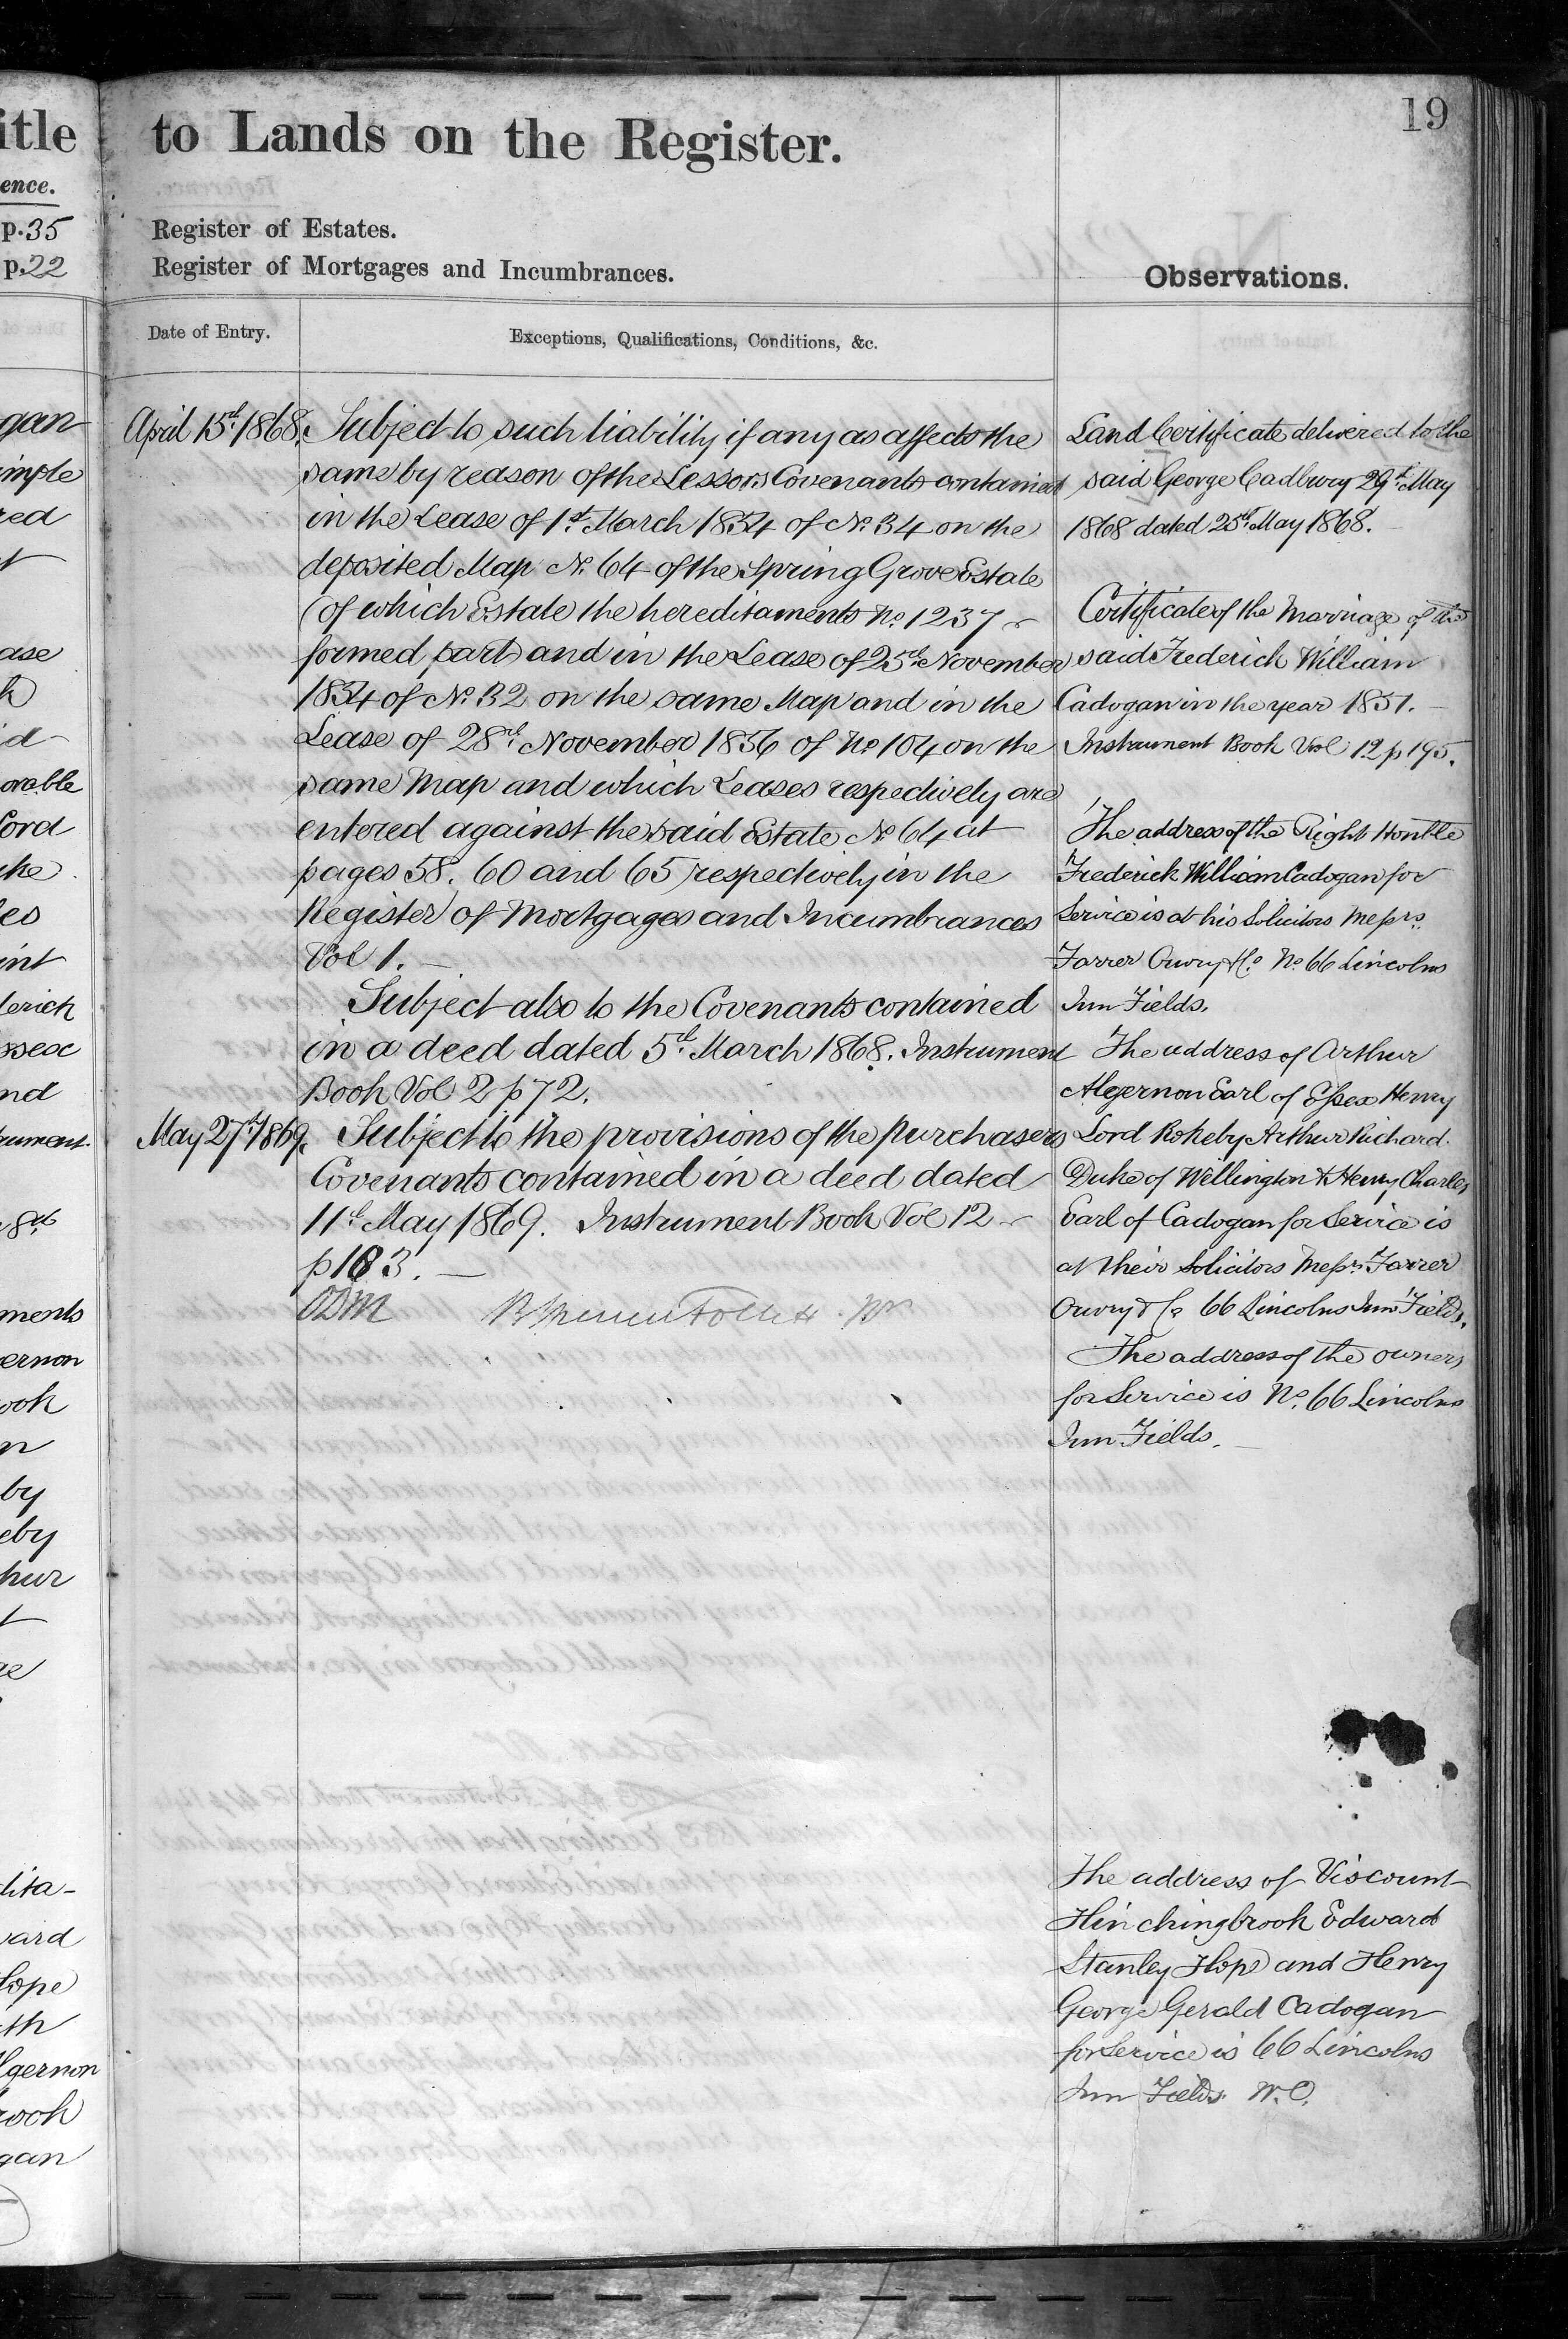 itle
ence.
p. 35
p. 22
gan
imple
red
ase
id
orable
Lord
uke
les
int
derick
ssex
nd
rument.
8th
ments
ernon
ook
n
by
eby
hur
t
ge
dita-
ward
Hope
ith
lgernon
rook
gan
19
to Lands on the Register.
Register of Estates.
Register of Mortgages and Incumbrances.
Date of Entry.
Exceptions, Qualifications, Conditions, &c.
April 15th 1868.
Subject to such liability if any as affects the
same by reason of the Lessors Covenants contained
in the Lease of 1st March 1854 of No. 34 on the
deposited Map No. 64 of the Spring Grove Estate
(of which Estate the hereditaments No. 1237
formed part) and in the Lease of 25th November
1854 of No. 32 on the same Map and in the
Lease of 28th November 1856 of No 104 on the
same Map and which Leases respectively are
entered against the said Estate No. 64 at
pages 58. 60 and 65 respectively in the
Register of Mortgages and Incumbrances
Vol 1. —
Subject also to the Covenants contained
in a deed dated 5th March 1868. Instrument
Book Vol 2 p 72.
May 27th 1869.
Subject to the provisions of the purchasers
Covenants contained in a deed dated
11th May 1869. Instrument Book Vol 12
p 183. —
Observations.
Land Certificate delivered to the
said George Cadbury 29th May
1868 dated 25th May 1868.
Certificate of the Marriage of the
said Frederick William
Cadogan in the year 1851. —
Instrument Book Vol 12 p 195.
The address of the Right Honble
Frederick William Cadogan for
Service is at his Solicitors Messrs.
Farrer Ouvry & Co No. 66 Lincolns
Inn Fields.
The address of Arthur
Algernon Earl of Essex Henry
Lord Rokeby Arthur Richard
Duke of Wellington & Henry Charles
Earl of Cadogan for Service is
at their Solicitors Messrs. Farrer
Ouvry & Co 66 Lincolns Inn Fields.
The address of the owners
for Service is No. 66 Lincolns
Inn Fields. —
The address of Viscount
Hinchingbrook Edward
Stanley Hope and Henry
George Gerald Cadogan
for Service is 66 Lincolns
Inn Fields W.C.